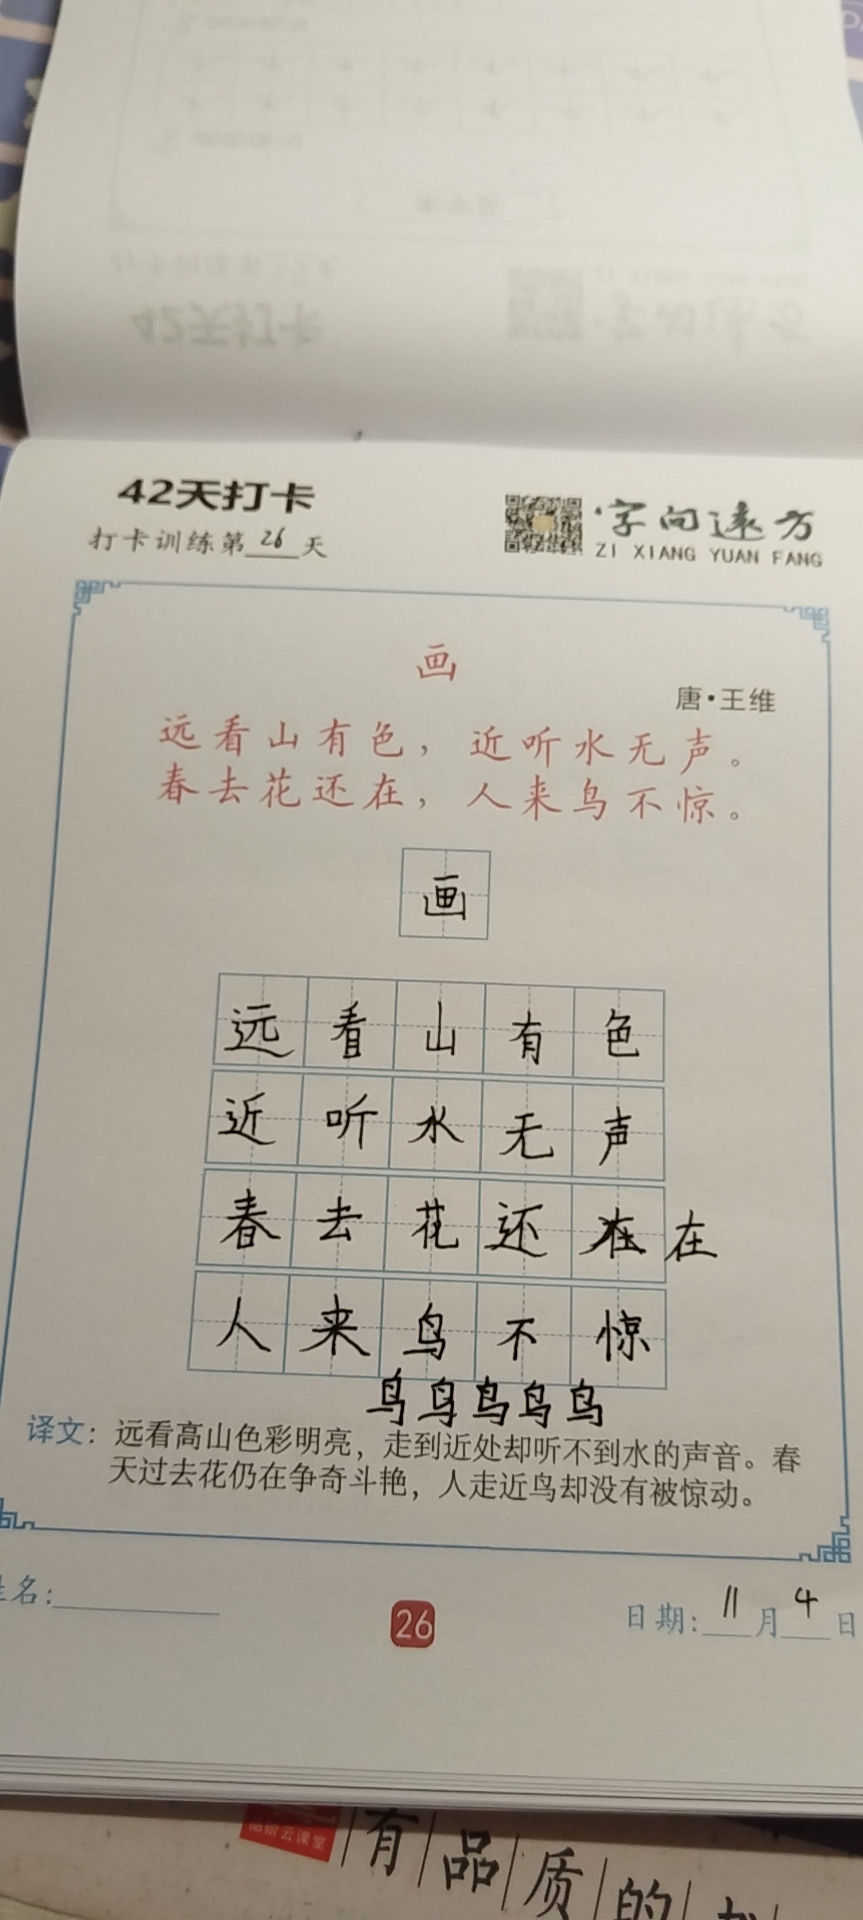 42天打卡
字向远方
打卡训练第26天
ZI XIANG YUAN FANG
画
唐·王维
远看山有色，近听水无声。
春去花还在，人来鸟不惊。
画
远看山有色
近听水无声
春去花还在 在
人来鸟不惊
鸟鸟鸟鸟鸟
译文：远看高山色彩明亮，走到近处却听不到水的声音。春
天过去花仍在争奇斗艳，人走近鸟却没有被惊动。
姓名：
26
日期：11月4日
云课堂
有品质的